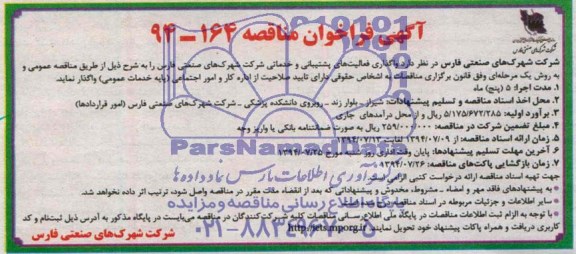 آگهی فراخوان مناقصه ۱۶۴ - ۹۴
شرکت شهرک‌های صنعتی فارس
شرکت شهرک‌های صنعتی فارس در نظر دارد واگذاری فعالیت‌های پشتیبانی و خدماتی شرکت شهرک‌های صنعتی فارس را به شرح ذیل از طریق مناقصه عمومی و
به روش یک مرحله‌ای وفق قانون برگزاری مناقصات به اشخاص حقوقی دارای تایید صلاحیت از اداره کار و امور اجتماعی (پایه خدمات عمومی) واگذار نماید.
۱. مدت اجرا: ۵ (پنج) ماه
۲. محل اخذ اسناد مناقصه و تسلیم پیشنهادات: شیراز ـ بلوار زند ـ روبروی دانشکده پزشکی ـ شرکت شهرک‌های صنعتی فارس (امور قراردادها)
۳. برآورد اولیه: ۵/۱۷۵/۶۷۲/۲۸۵ ریال و از محل درآمدهای جاری
۴. مبلغ تضمین شرکت در مناقصه: ۲۵۹/۰۰۰/۰۰۰ ریال به صورت ضمانتنامه بانکی یا واریز وجه
۵. زمان ارائه اسناد مناقصه: از ۱۳۹۴/۰۷/۰۹ لغایت ۱۳۹۴/۰۷/۱۳
۶. آخرین مهلت تسلیم پیشنهادها: پایان وقت اداری روز شنبه مورخ ۱۳۹۴/۰۷/۲۵
۷. زمان بازگشایی پاکت‌های مناقصه: ۱۳۹۴/۰۷/۲۶
جهت تهیه اسناد مناقصه ارائه درخواست کتبی الزامی
به پیشنهادهای فاقد مهر و امضاء ـ مشروط، مخدوش و پیشنهاداتی که بعد از انقضاء مدت مقرر در مناقصه واصل شود، ترتیب اثر داده نخواهد شد.
سایر اطلاعات و جزئیات مربوطه در اسناد مناقصه
با توجه به الزام ثبت اطلاعات مناقصات در پایگاه ملی اطلاع‌رسانی مناقصات کلیه شرکت‌کنندگان در مناقصه می‌بایست در پایگاه مذکور به آدرس ذیل ثبت‌نام و کد
کاربری دریافت و همراه پاکات پیشنهاد خود تحویل نمایند. http://iets.mporg.ir
شرکت شهرک‌های صنعتی فارس
ParsNamadData
فن‌آوری اطلاعات پارس نماد داده‌ها
پایگاه اطلاع رسانی مناقصه و مزایده
۰۲۱-۸۸۳۴۹۶۷۰-۵